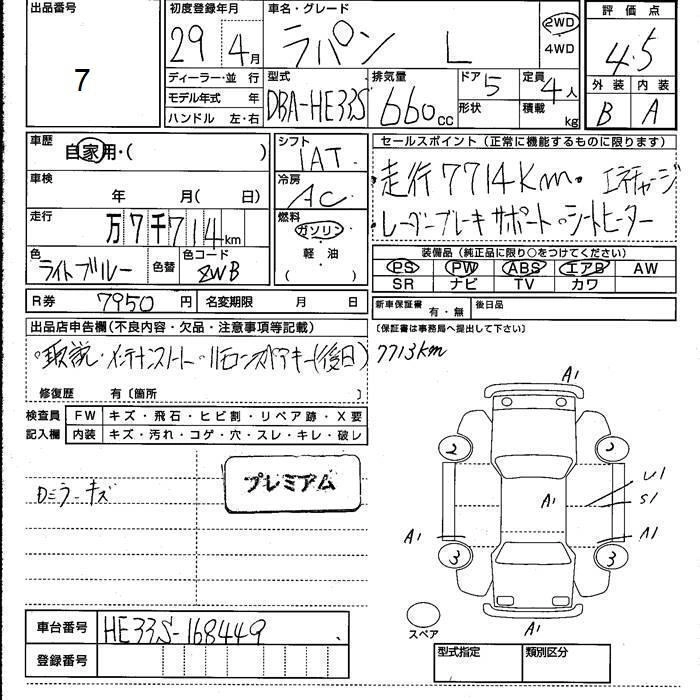 出品番号
7
初度登録年月
29年4月
車名・グレード
ラパン L
2WD
4WD
評価点
4.5
外装 内装
B A
ディーラー・並行
モデル年式 年
ハンドル 左・右
型式
DBA-HE33S
排気量
660cc
ドア 5
形状
定員 4人
積載 kg
車歴
自家用・( )
車検
年 月( 日)
走行
万7千714km
色
ライトブルー
色替
色コード
ZWB
シフト
IAT
冷房
AC
燃料
ガソリン
軽・油
( )
セールスポイント(正常に機能するものに限ります)
・走行7714Km。エネチャージ
・レーダーブレーキサポート。シートヒーター
装備品(純正品に限り○をつけてください)
PS PW ABS エアB AW
SR ナビ TV カワ
R券 7950円 名変期限 月 日
新車保証書 有・無 後日品
〔保証書は事務局へ提出して下さい〕
出品店申告欄(不良内容・欠品・注意事項等記載)
・取説・メンテナンスノート・リモコンスペアキー(後日)
修復歴 有〔箇所 〕
7713km
検査員
記入欄
FW キズ・飛石・ヒビ割・リペア跡・X要
内装 キズ・汚れ・コゲ・穴・スレ・キレ・破レ
プレミアム
Dミラーキズ
A1
2 2
U1
A1 S1
A1 A1
3 3
A1
スペア
車台番号 HE33S-168449
登録番号
型式指定 類別区分